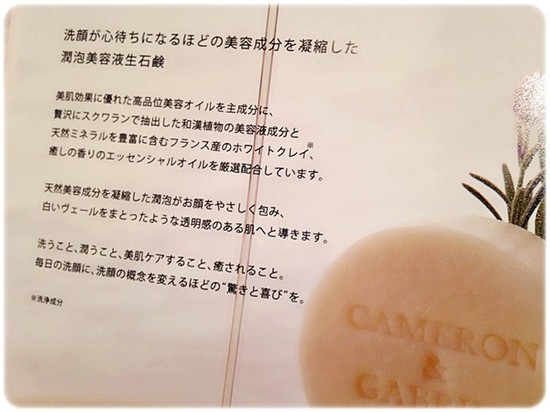 洗顔が心待ちになるほどの美容成分を凝縮した
潤泡美容液生石鹸
美肌効果に優れた高品位美容オイルを主成分に、
贅沢にスクワランで抽出した和漢植物の美容液成分と
天然ミネラルを豊富に含むフランス産のホワイトクレイ※、
癒しの香りのエッセンシャルオイルを厳選配合しています。
天然美容成分を凝縮した潤泡がお顔をやさしく包み、
白いヴェールをまとったような透明感のある肌へと導きます。
洗うこと、潤うこと、美肌ケアすること、癒されること。
毎日の洗顔に、洗顔の概念を変えるほどの“驚きと喜び”を。
※洗浄成分
CAMERON
&